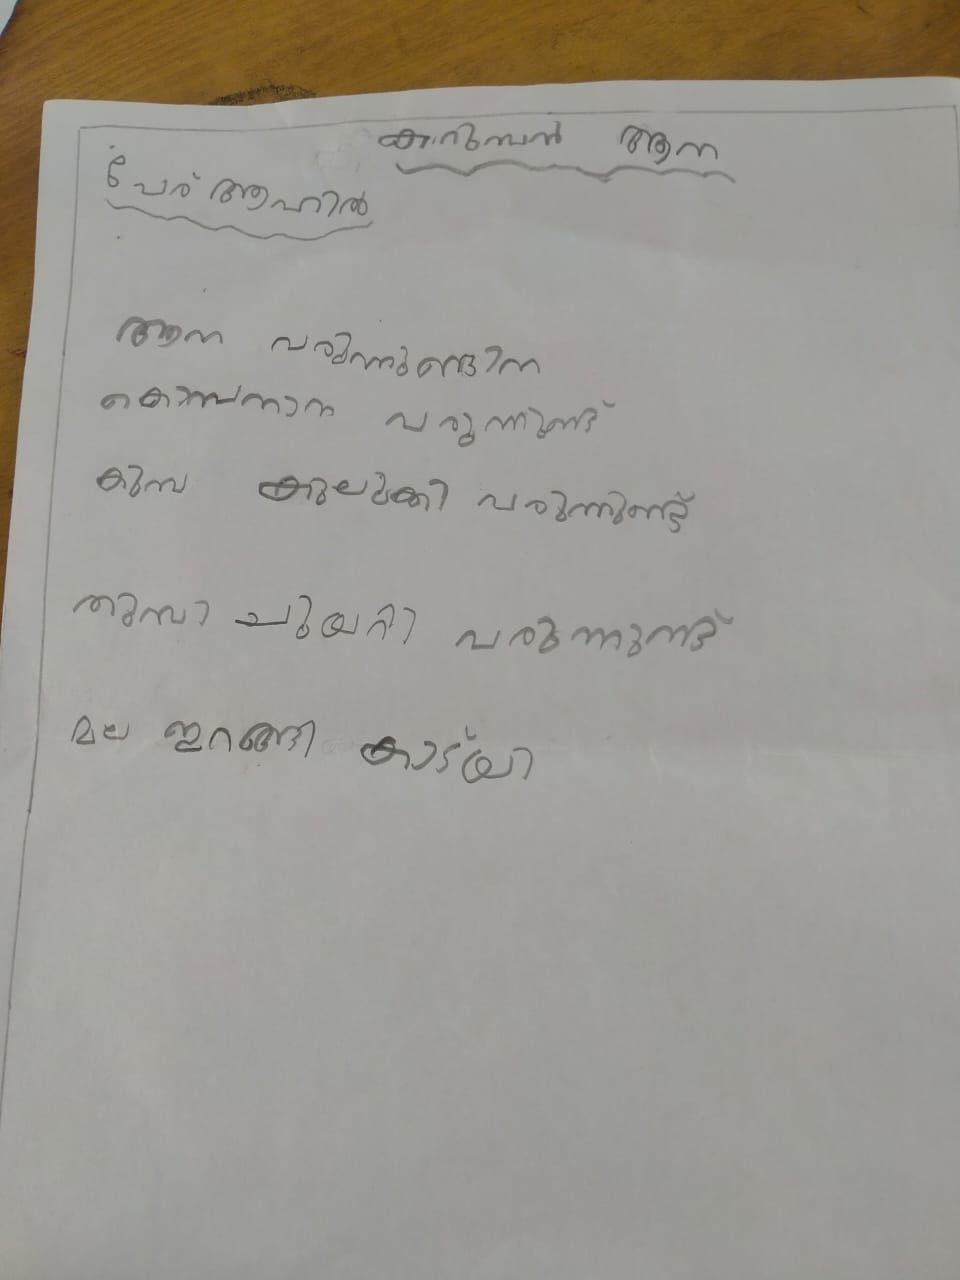 കുറുമ്പൻ ആന
പേര് ആഹിൽ
ആന വരുന്നുണ്ടാന
കൊമ്പനാന വരുന്നുണ്ട്
കുമ്പ കുലുക്കി വരുന്നുണ്ട്
തുമ്പി ചുയറ്റി വരുന്നുന്ട്
മല ഇറങ്ങി